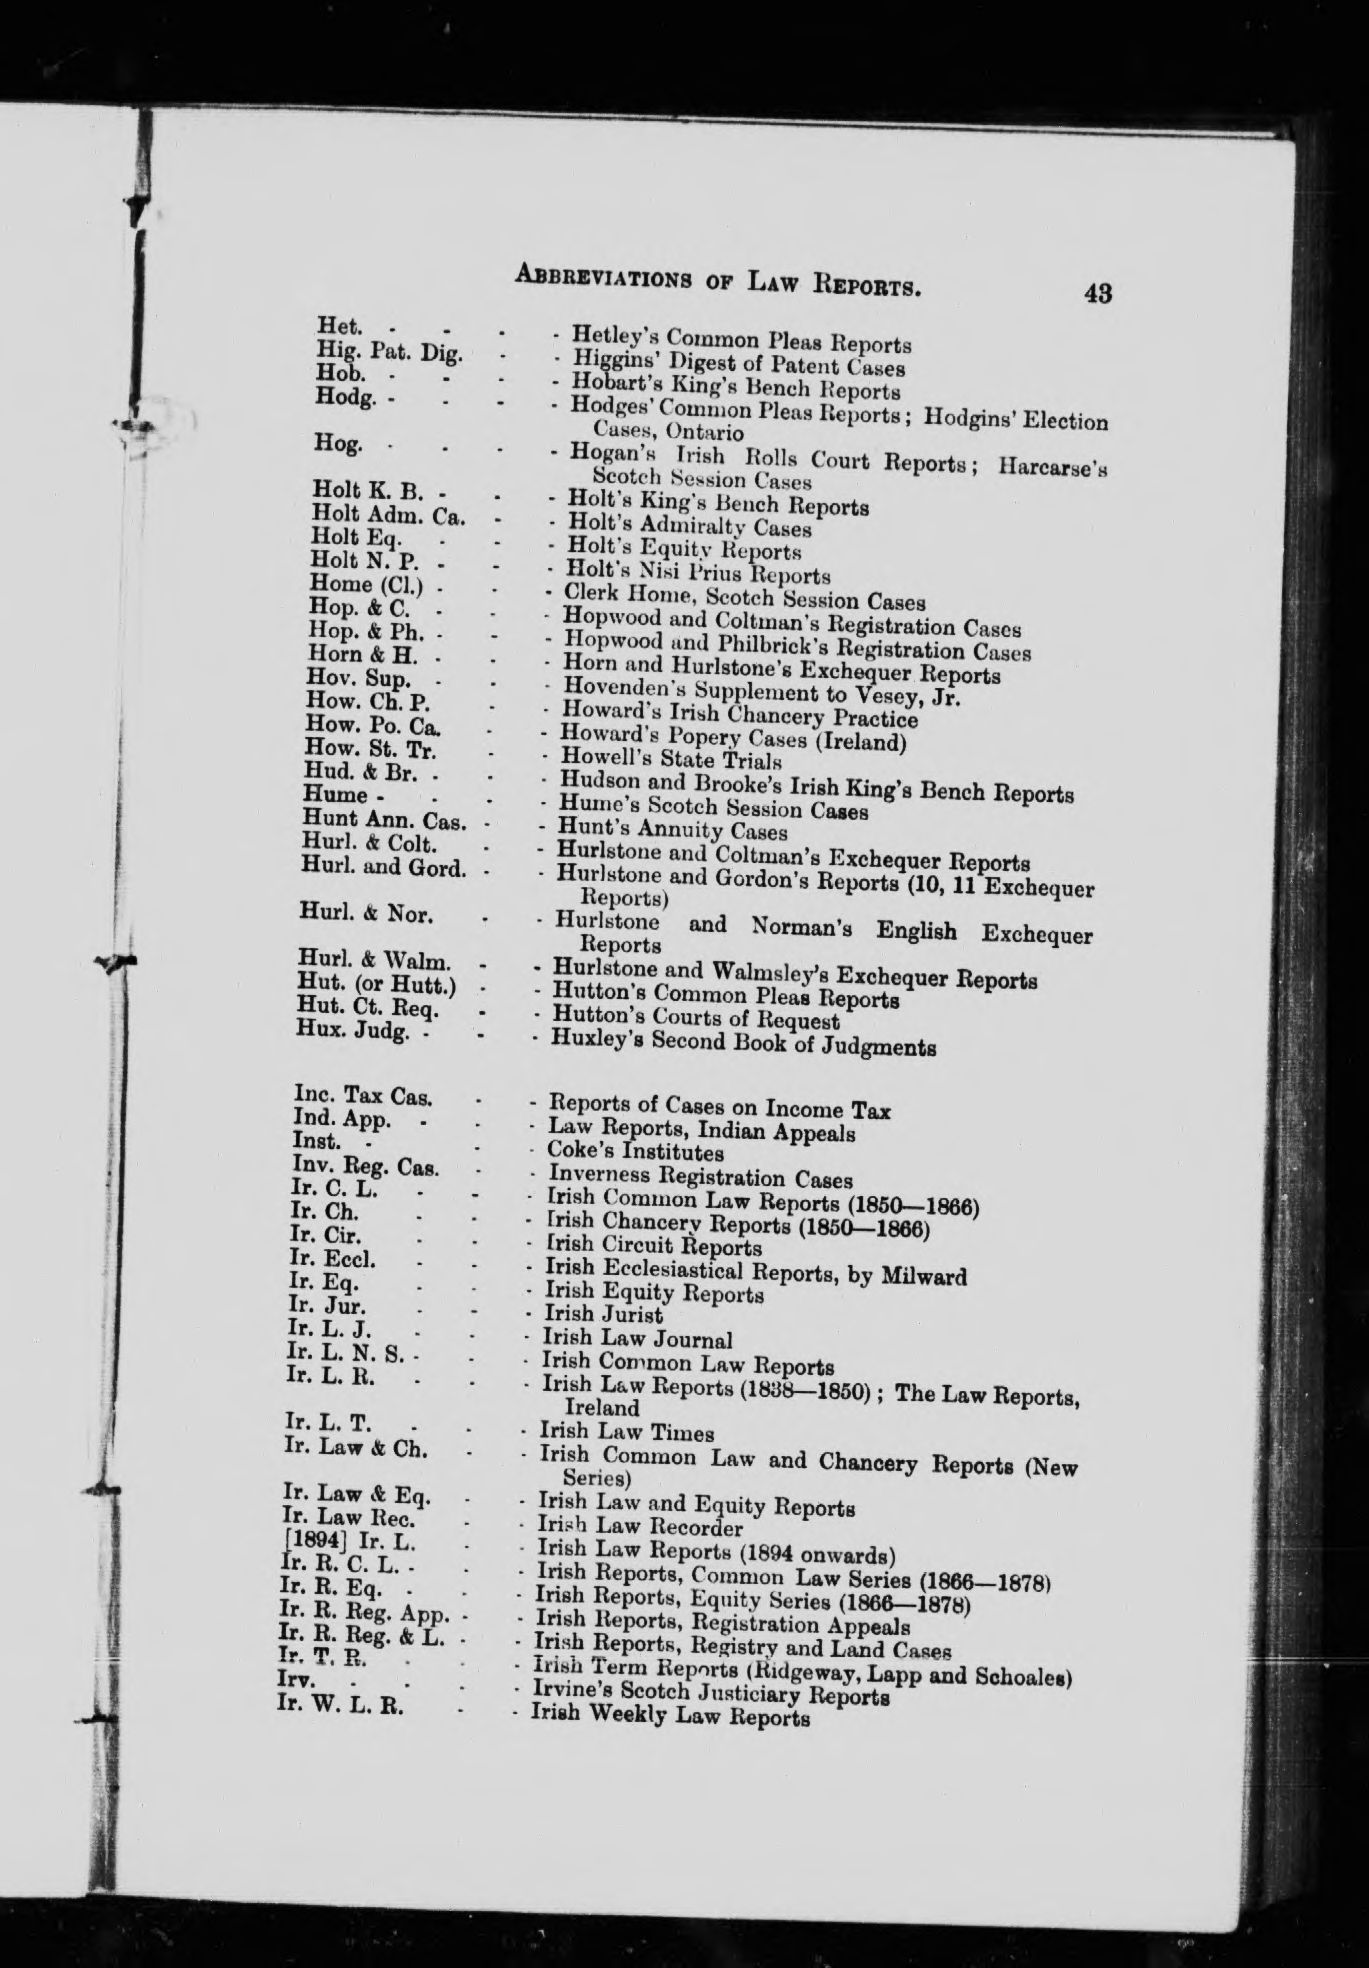 ABBREVIATIONS OF LAW REPORTS. 43
Het. - - - - Hetley's Common Pleas Reports
Hig. Pat. Dig. - - Higgins' Digest of Patent Cases
Hob. - - - - Hobart's King's Bench Reports
Hodg. - - - - Hodges' Common Pleas Reports; Hodgins' Election
Cases, Ontario
Hog. - - - - Hogan's Irish Rolls Court Reports; Harcarse's
Scotch Session Cases
Holt K. B. - - - Holt's King's Bench Reports
Holt Adm. Ca. - - Holt's Admiralty Cases
Holt Eq. - - - Holt's Equity Reports
Holt N. P. - - - Holt's Nisi Prius Reports
Home (Cl.) - - - Clerk Home, Scotch Session Cases
Hop. & C. - - - Hopwood and Coltman's Registration Cases
Hop. & Ph. - - - Hopwood and Philbrick's Registration Cases
Horn & H. - - - Horn and Hurlstone's Exchequer Reports
Hov. Sup. - - - Hovenden's Supplement to Vesey, Jr.
How. Ch. P. - - Howard's Irish Chancery Practice
How. Po. Ca. - - Howard's Popery Cases (Ireland)
How. St. Tr. - - Howell's State Trials
Hud. & Br. - - - Hudson and Brooke's Irish King's Bench Reports
Hume - - - - Hume's Scotch Session Cases
Hunt Ann. Cas. - - Hunt's Annuity Cases
Hurl. & Colt. - - Hurlstone and Coltman's Exchequer Reports
Hurl. and Gord. - - Hurlstone and Gordon's Reports (10, 11 Exchequer
Reports)
Hurl. & Nor. - - Hurlstone and Norman's English Exchequer
Reports
Hurl. & Walm. - - Hurlstone and Walmsley's Exchequer Reports
Hut. (or Hutt.) - - Hutton's Common Pleas Reports
Hut. Ct. Req. - - Hutton's Courts of Request
Hux. Judg. - - - Huxley's Second Book of Judgments
Inc. Tax Cas. - - Reports of Cases on Income Tax
Ind. App. - - - Law Reports, Indian Appeals
Inst. - - - Coke's Institutes
Inv. Reg. Cas. - - Inverness Registration Cases
Ir. C. L. - - - Irish Common Law Reports (1850—1866)
Ir. Ch. - - - Irish Chancery Reports (1850—1866)
Ir. Cir. - - - Irish Circuit Reports
Ir. Eccl. - - - Irish Ecclesiastical Reports, by Milward
Ir. Eq. - - - Irish Equity Reports
Ir. Jur. - - - Irish Jurist
Ir. L. J. - - - Irish Law Journal
Ir. L. N. S. - - - Irish Common Law Reports
Ir. L. R. - - - Irish Law Reports (1838—1850); The Law Reports,
Ireland
Ir. L. T. - - - Irish Law Times
Ir. Law & Ch. - - Irish Common Law and Chancery Reports (New
Series)
Ir. Law & Eq. - - Irish Law and Equity Reports
Ir. Law Rec. - - Irish Law Recorder
[1894] Ir. L. - - Irish Law Reports (1894 onwards)
Ir. R. C. L. - - - Irish Reports, Common Law Series (1866—1878)
Ir. R. Eq. - - - Irish Reports, Equity Series (1866—1878)
Ir. R. Reg. App. - - Irish Reports, Registration Appeals
Ir. R. Reg. & L. - - Irish Reports, Registry and Land Cases
Ir. T. R. - - - Irish Term Reports (Ridgeway, Lapp and Schoales)
Irv. - - - - Irvine's Scotch Justiciary Reports
Ir. W. L. R. - - Irish Weekly Law Reports